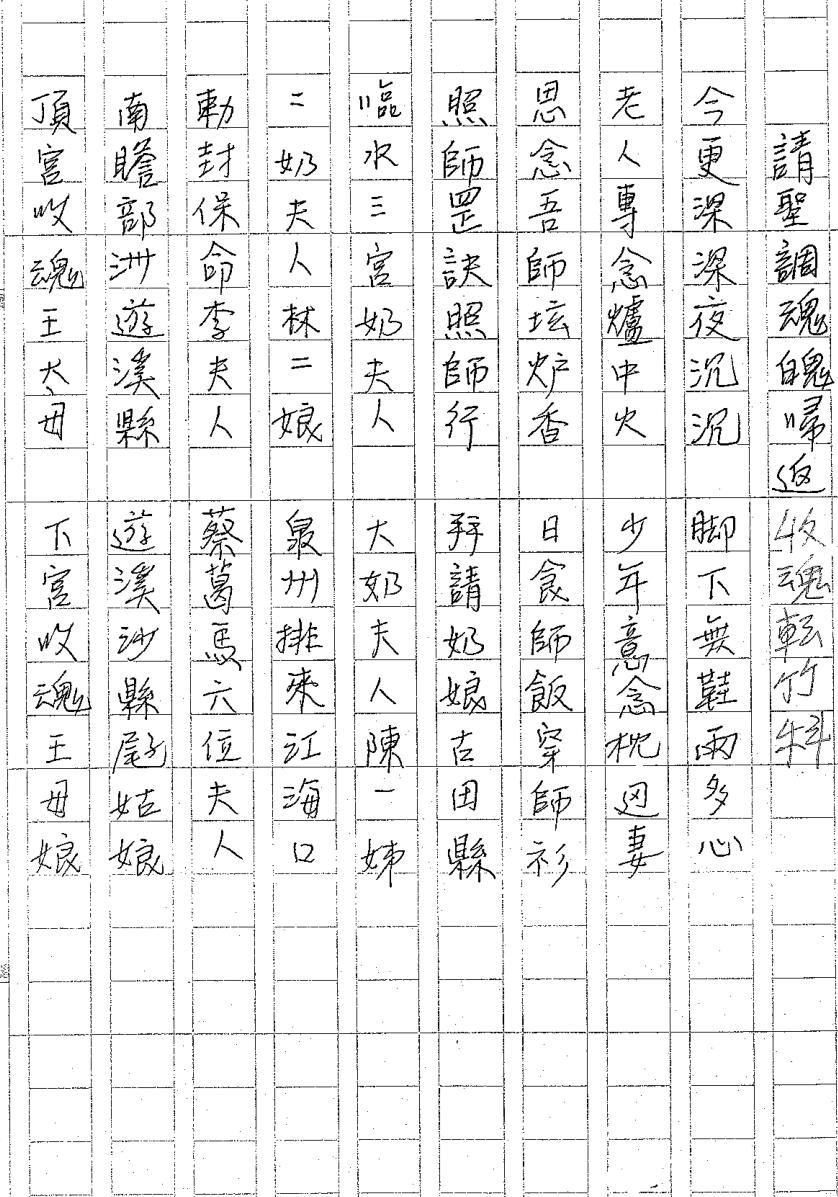 請聖調魂魄歸返收魂転竹科
今更深深夜沉沉 脚下無鞋兩多心
老人專念爐中火 少年意念枕迌妻
思念吾師坛炉香 日食師飯穿師衫
照師罡訣照師行 拜請奶娘古田縣
臨水三宮奶夫人 大奶夫人陳一姊
二奶夫人林二娘 泉州排來江海口
勅封保命李夫人 蔡葛馬六位夫人
南瞻部洲遊溪縣 遊溪沙縣尾姑娘
頂宮收魂王太母 下宮收魂王母娘